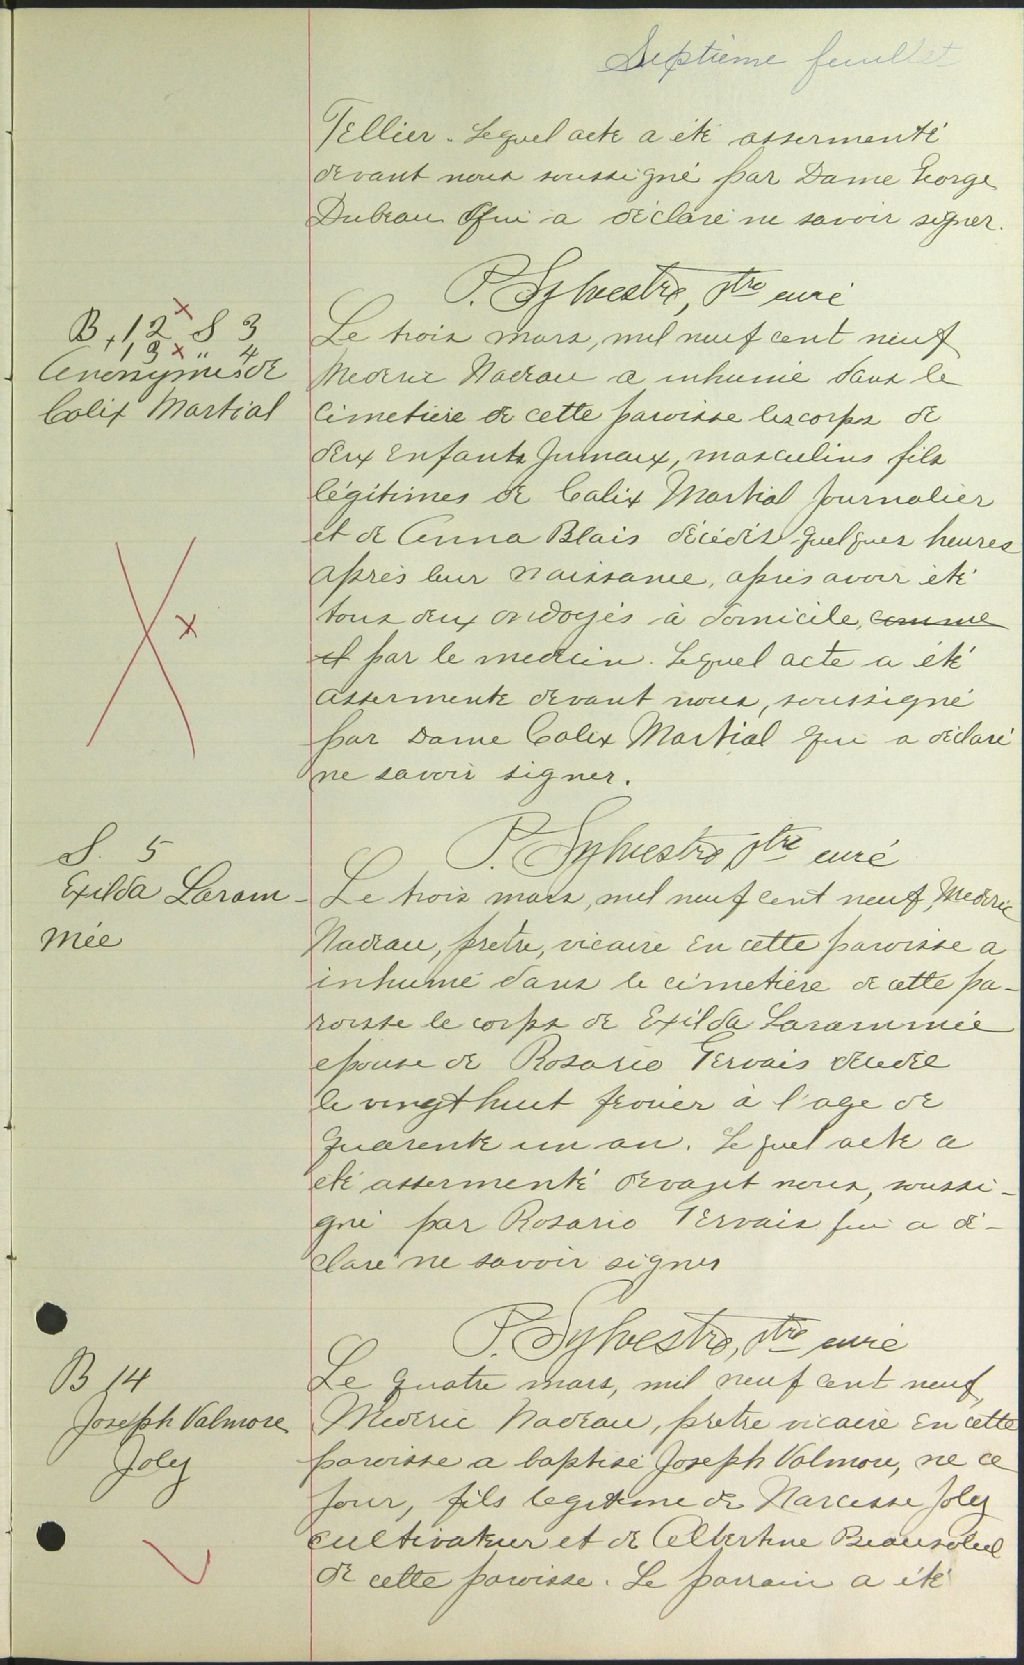 Septième feuillet
Tellier. Lequel acte a été assermenté
devant nous soussigné par Dame George
Dubeau Qui a déclaré ne savoir signer.
P. Sylvestre, ptre curé
B. 12 S 3
13 " 4
Anonymes de
Calix Martial
Le trois mars, mil neuf cent neuf
Mederic Nadeau a inhumé dans le
cimetière de cette paroisse les corps de
deux enfants jumeaux, masculins fils
légitimes de Calix Martial journalier
et de Anna Blais décédés quelques heures
après leur naissance, après avoir été
tous deux ondoyés à domicile, comme
il par le medecin. Lequel acte a été
assermenté devant nous, soussigné
par Dame Calix Martial qui a déclaré
ne savoir signer.
P. Sylvestre ptre curé
S. 5
Exilda Laram-
mée
Le trois mars, mil neuf cent neuf, Mederic
Nadeau, pretre, vicaire en cette paroisse a
inhumé dans le cimetière de cette pa-
roisse le corps de Exilda Larammée
epouse de Rosario Gervais décédée
le vingt huit fevrier à l'age de
quarente un an. Lequel acte a
été assermenté devant nous, soussi-
gné par Rosario Gervais qui a dé-
claré ne savoir signer
P. Sylvestre, ptre curé
B 14
Joseph Valmore
Joly
Le quatre mars, mil neuf cent neuf,
Mederic Nadeau, pretre vicaire en cette
paroisse a baptisé Joseph Valmore, ne ce
jour, fils legitime de Narcisse Joly
cultivateur et de Albertine Beausoleil
de cette paroisse. Le parrain a été